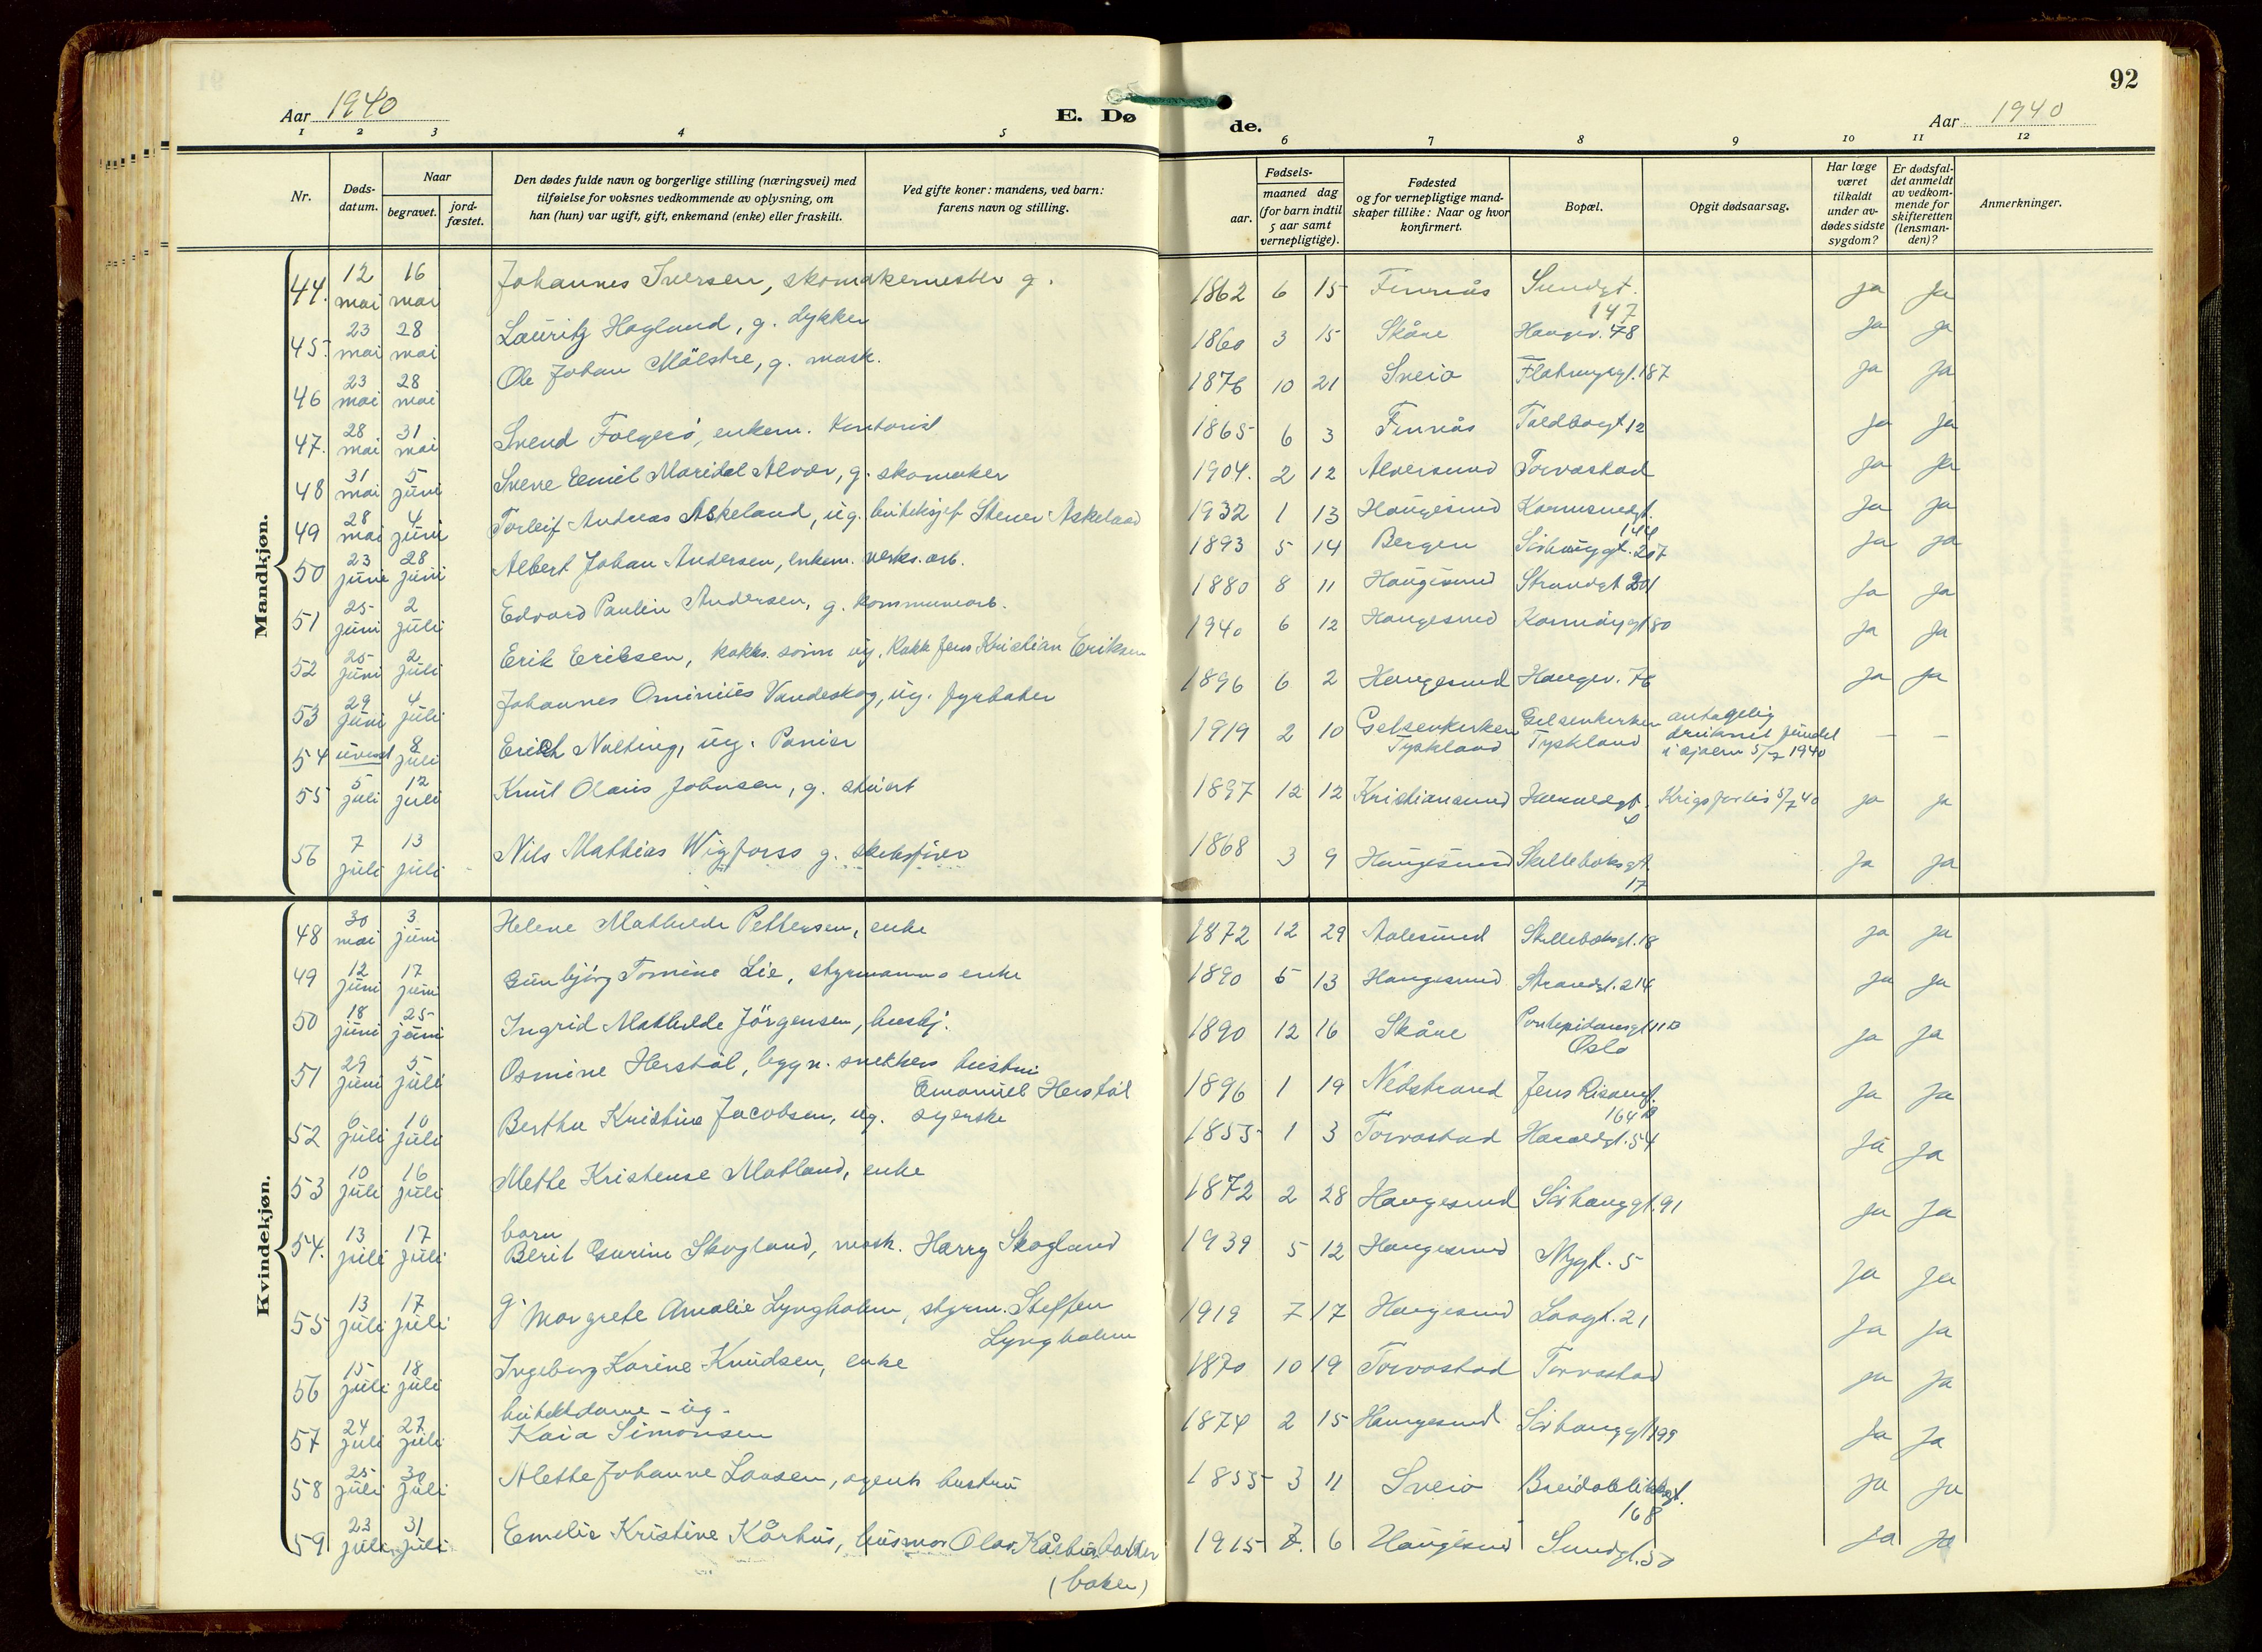 92
Aar 1940
E. Dø
de.
Aar 1940
1 2 3 4 5 6 7 8 9 10 11 12
Nr.
Døds-
datum.
Naar
begravet.
jord-
fæstet.
Den dødes fulde navn og borgerlige stilling (næringsvei) med
tilføielse for voksnes vedkommende av oplysning, om
han (hun) var ugift, gift, enkemand (enke) eller fraskilt.
Ved gifte koner: mandens, ved barn:
farens navn og stilling.
Fødsels-
aar.
maaned dag
(for barn indtil
5 aar samt
vernepligtige).
Fødested
og for vernepligtige mand-
skaper tillike: Naar og hvor
konfirmert.
Bopæl.
Opgit dødsaarsag.
Har læge
været
tilkaldt
under av-
dødes sidste
sygdom?
Er dødsfal-
det anmeldt
av vedkom-
mende for
skifteretten
(lensman-
den)?
Anmerkninger.
Mandkjøn.
44. 12 mai 16 mai Johannes Iversen, skomakermester g. 1862 6 15 Finnås Sundgt. 147 ja ja
45. 23 mai 28 mai Lauritz Hagland, g. dykker 1860 3 15 Skåre Haugev. 78 ja ja
46 23 mai 28 mai Ole Johan Mölstre, g. mask. 1876 10 21 Sveio Flotmyrgt. 187 ja ja
47. 28 mai 31 mai Svend Folgerö, enkem. Kontorist 1865 6 3 Finnås Toldbogt 12 ja ja
48 31 mai 5 juni Sverre Emil Maridal Alver, g. skomaker 1904. 2 12 Alversund Torvastad ja ja
49 28 mai 4 juni Torleif Andreas Askeland, ug. butiksjef Stener Askeland 1932 1 13 Haugesund Karmsundgt. 144 ja ja
50 23 juni 28 juni Albert Johan Andersen, enkem. verks. arb. 1893 5 14 Bergen Sörhauggt. 207 ja ja
51 25 juni 2 juli Edvard Paulin Andersen, g. kommunearb. 1880 8 11 Haugesund Strandgt 201 ja ja
52 25 juni 2 juli Erik Eriksen, kokks. sönn ug. Kokk Jens Kristian Eriksen 1940 6 12 Haugesund Karmöygt 80 ja ja
53 29 juni 4 juli Johannes Ominius Vandeskog, ug. fyrböter 1896 6 2 Haugesund Haugev. 76 ja ja
54 uvisst 8 juli Erich Nolting, ug. Panier 1919 2 10 Gelsenkirken Tyskland Gelsenkirken Tyskland antagelig druknet fundet i sjøen 5/7 1940 — —
55 5 juli 12 juli Knut Olaus Johnsen, g. stuert 1897 12 12 Kristiansund Haraldgt. 6 Krigsforlis 5/7 40 ja ja
56 7 juli 13 juli Nils Mathias Wigforss g. skibsförer 1868 3 9 Haugesund Skillebeksgt. 17 ja ja
Kvindekjøn.
48 30 mai 3 juni Helene Mathilde Pettersen, enke 1872 12 29 Aalesund Skillebeksgt. 18 ja ja
49 12 juni 17 juni Gunbjörg Tomine Lie, styrmanns enke 1890 5 13 Haugesund Strandgt. 214 ja ja
50 18 juni 25 juni Ingrid Mathilde Jörgensen, husbj. 1890 12 16 Skåre Pontopidansgt 11 B Oslo ja ja
51 29 juni 5 juli Osmine Herstöl, bygn. snekkers hustru Emanuel Herstöl 1896 1 19 Nedstrand Jens Risøesgt. 164 B ja ja
52 6 juli 10 juli Bertha Kristine Jacobsen, ug. syerske 1855 1 3 Torvastad Haraldgt. 54 ja ja
53 10 juli 16 juli Methe Kristense Matland, enke 1872 2 28 Haugesund Sörhauggt. 91 ja ja
54. 13 juli 17 juli barn Berit Gurine Skogland, mask. Harry Skogland 1939 5 12 Haugesund Nygt. 5 ja ja
55 13 juli 17 juli g. Margrete Amalie Lyngholm, styrm. Steffen Lyngholm 1919 7 17 Haugesund Laagt. 21 ja ja
56 15 juli 18 juli Ingeborg Karine Knudsen, enke 1870 10 19 Torvastad Torvastad ja ja
57 24 juli 27 juli butikkdame - ug - Kaia Simonsen 1874 2 15 Haugesund Sörhauggt 199 ja ja
58 25 juli 30 juli Alethe Johanne Laasen, agents hustru 1855 3 11 Sveio Breidablikkgt. 168 ja ja
59 23 juli 31 juli Emelie Kristine Kårhus, husmor Olav Kårhus (baker) 1915 7. 6 Haugesund Sundgt. 50 ja ja